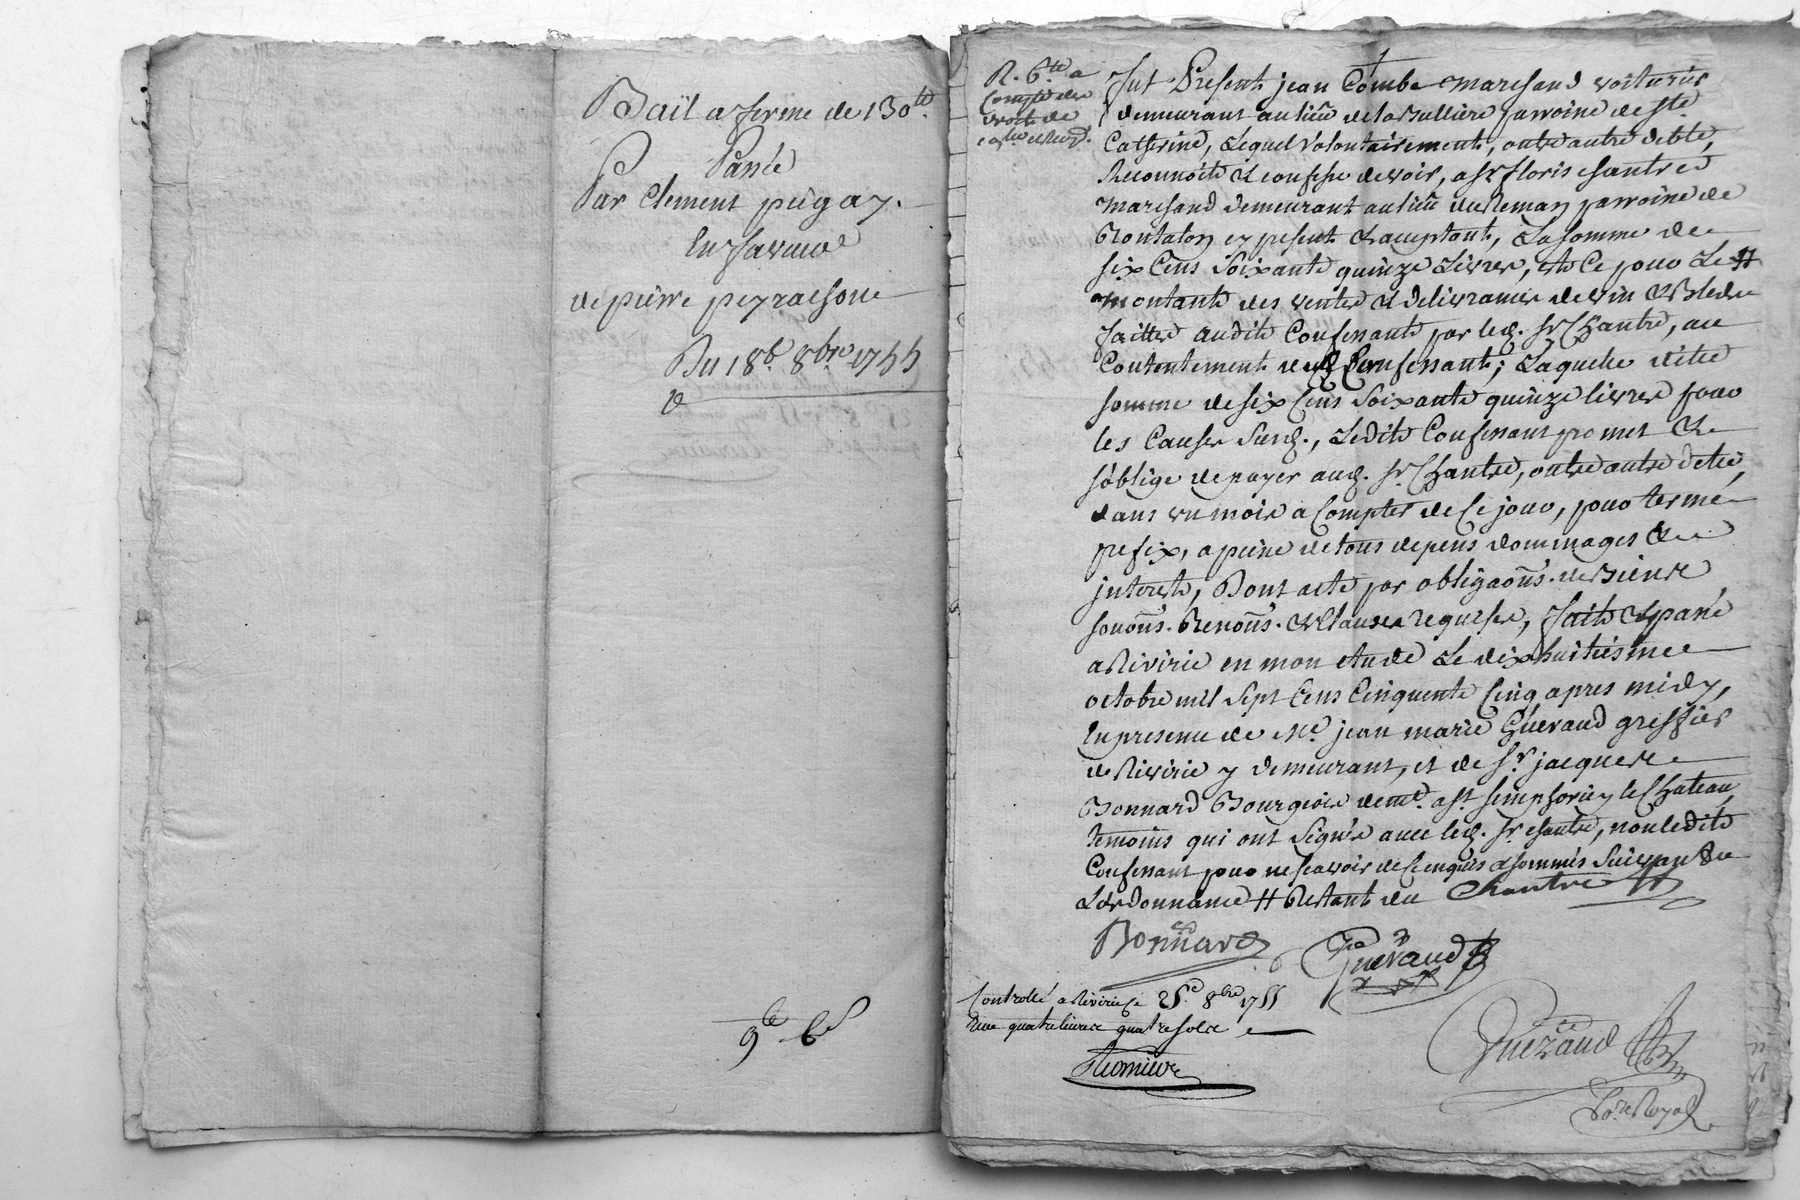 Bail a ferme de 130 tt
Passé
Par Clement pugay
En faveur
de pierre peyrachon
Du 18e. 8bre 1755
9 le 6 s
R. 6 tt a
compte des
droits de
Fut Présent jean Combe marchand voiturier
demeurant au lieu de la Bulliere parroine de Ste
Catherine, Lequel volontairement, outre autre debte,
Reconnoit & confesse devoir, a Sr floris chantre
marchand demeurant au lieu du Reman parroine de
Rontalon ey present & acceptant, La somme de
six Cens Soixante quinze Livres, et ce pour Le #
montant des ventes & delivrances de vin & Bled
faittes audit Confessant par led. Sr Chantre, au
Contentement dud. Confessant; Laquelle ditte
somme de six Cens Soixante quinze livres pour
les Causes Susd., Ledit Confessant promet &
s'oblige de payer aud. Sr. Chantre, outre autre dette,
dans un mois a Compter de Ce jour, pour terme
prefix, a peine de tous depens dommages &
interests, Dont acte par obligaons. de Biens
soumons. Renons. & Clauses requises, fait & passé
a Rivirie en mon etude Le dix huitiesme
octobre mil sept Cens Cinquente Cinq apres midy,
En presence de Me. jean marie Guéraud greffier
de Rivirie y demeurant, et de Sr. jacques
Bonnard Bourgeois demt. a St. simphorien le Chateau,
temoins qui ont signés avec led. Sr chantre, non ledit
Confessant pour ne scavoir de Ce enquis & sommés Suivant
L'ordonnance # Restant du Chantre
Bonnard Guéraud
Controllé a Riviriele 25e 8bre 1755
Reçu quatre livres quatre sols
Guéraud
No.re Royal